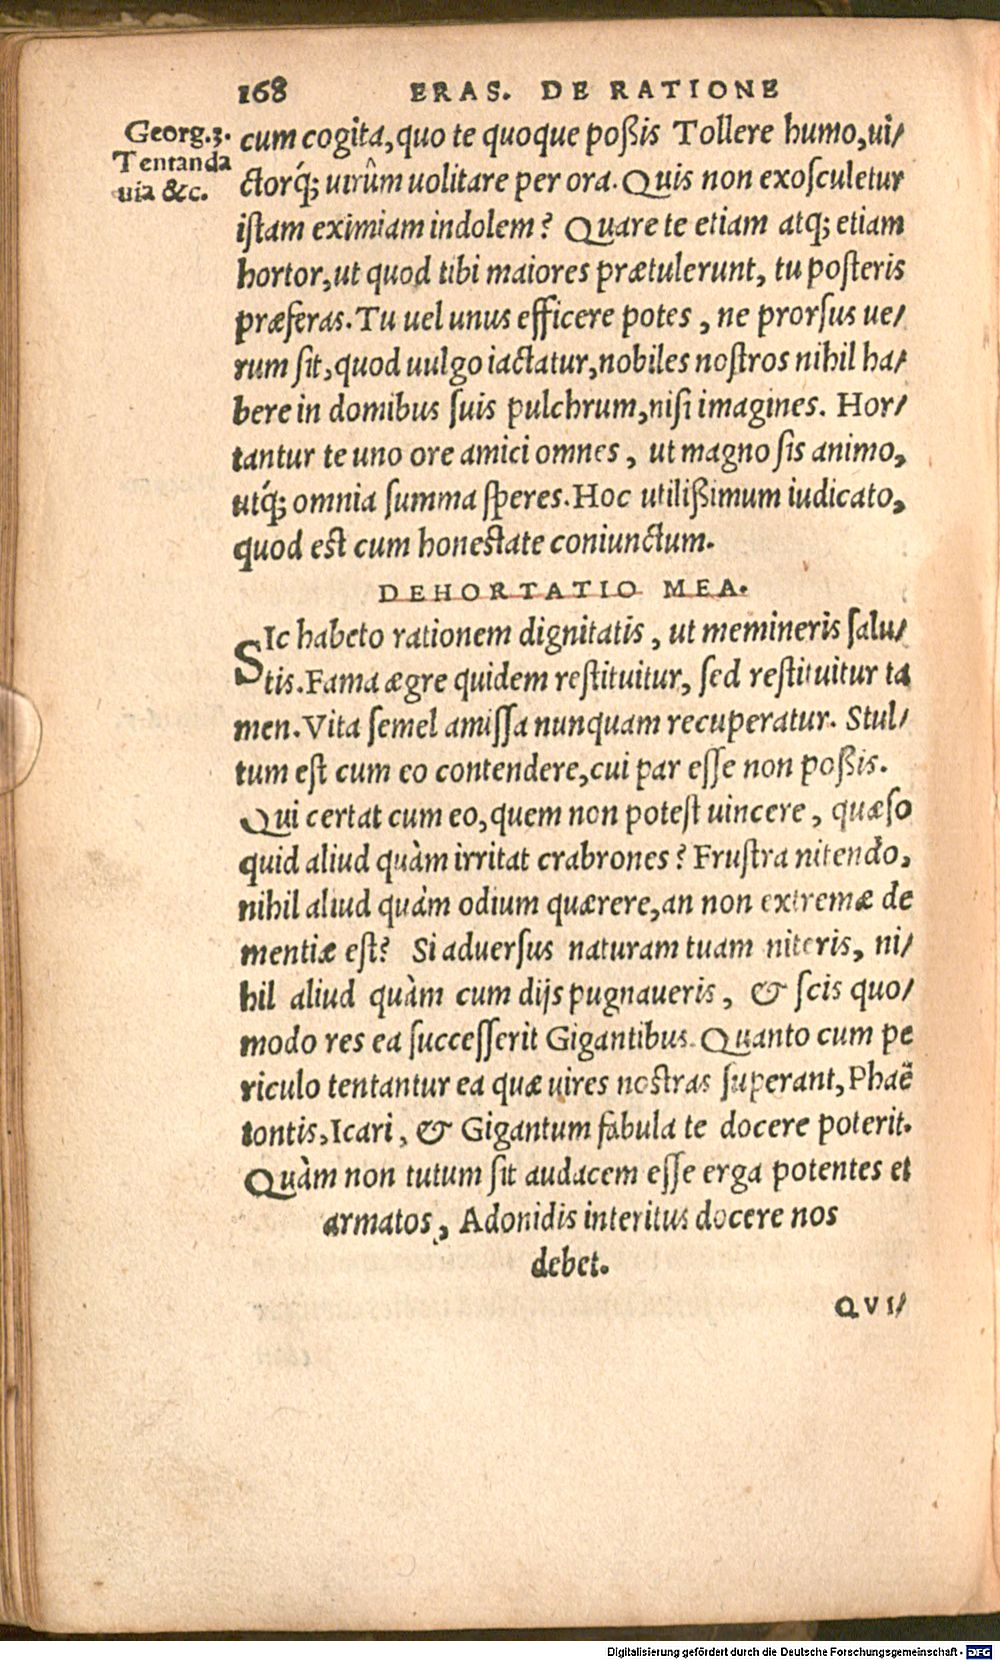 168 ERAS. DE RATIONE
Georg.3.
Tentanda
uia &c.
cum cogita, quo te quoque poßis Tollere humo, ui/
ctorq́; uirûm uolitare per ora. Quis non exosculetur
istam eximiam indolem? Quare te etiam atq; etiam
hortor, ut quod tibi maiores prætulerunt, tu posteris
præferas. Tu uel unus efficere potes, ne prorsus ue/
rum sit, quod uulgo iactatur, nobiles nostros nihil ha/
bere in domibus suis pulchrum, nisi imagines. Hor/
tantur te uno ore amici omnes, ut magno sis animo,
utq́; omnia summa speres. Hoc utilißimum iudicato,
quod est cum honestate coniunctum.
DEHORTATIO MEA.
SIc habeto rationem dignitatis, ut memineris salu/
tis. Fama ægre quidem restituitur, sed restituitur ta
men. Vita semel amissa nunquam recuperatur. Stul/
tum est cum eo contendere, cui par esse non poßis.
Qui certat cum eo, quem non potest uincere, quæso
quid aliud quàm irritat crabrones? Frustra nitendo,
nihil aliud quàm odium quærere, an non extremæ de
mentiæ est? Si aduersus naturam tuam niteris, ni/
hil aliud quàm cum dijs pugnaueris, & scis quo/
modo res ea successerit Gigantibus. Quanto cum pe
riculo tentantur ea quæ uires nostras superant, Phaë
tontis, Icari, & Gigantum fabula te docere poterit.
Quàm non tutum sit audacem esse erga potentes et
armatos, Adonidis interitus docere nos
debet.
QVI/
Digitalisierung gefördert durch die Deutsche Forschungsgemeinschaft - DFG